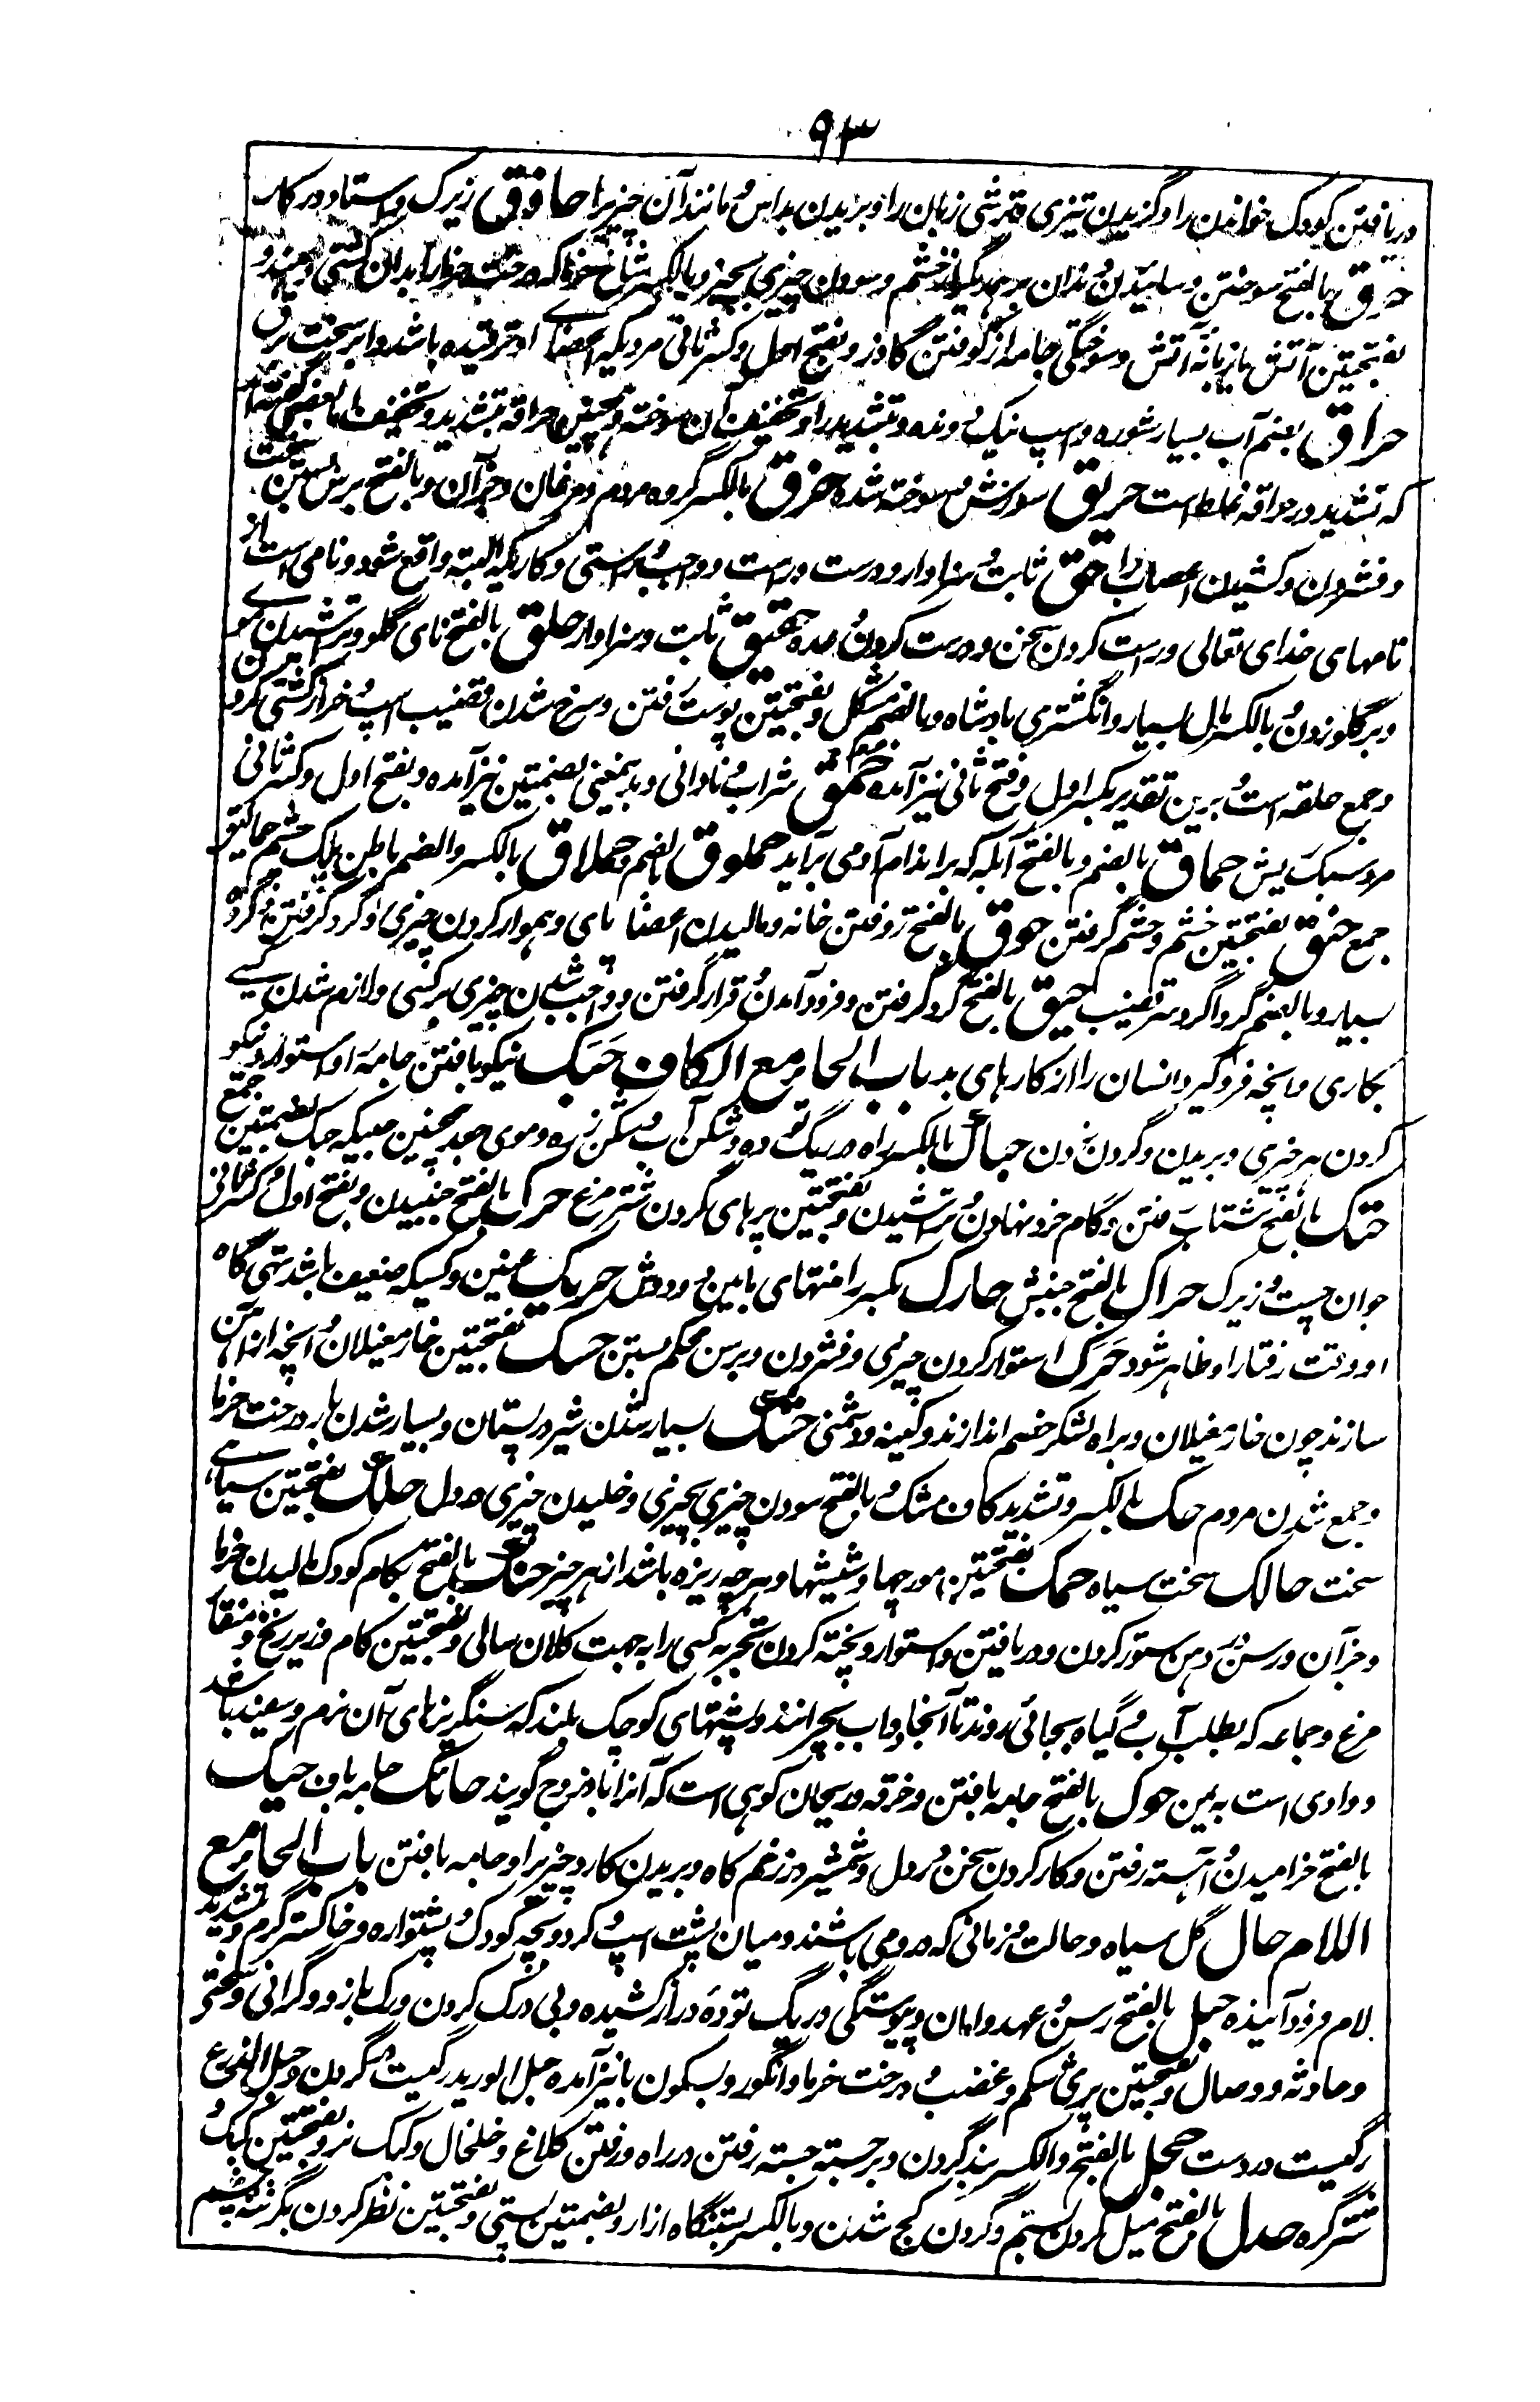 ۹۳
دریافتن کودک خواندن را و گزیدن تیزی و ترشی زبان را و بریدن بداس و مانند آن چیزیرا حاذق زیرک و استاد در کار
حرق بالفتح سوختن و سائیدن دندان بر یکدیگر از خشم و سودن چیزی بچیز و بالکسر شاخ خرما که درخت خرما را بدان کشنی دهند و
بفتحتین آتش یا زبانه آتش و سوختگی جامه از کوفتن گاذر و بفتح اول و کسر ثانی مردیکه اعضای او ترقیده باشد و ابر سخت برق
حراق بضم آب بسیار شوره و اسپ نیک دونده و بتشدید را و تخفیف آن سوخته و همچنین حراقه بتشدید و تخفیف اما بعضی گفته‌اند
که تشدید در حراقه غلط است حریق سوزش و سوخته شده حزق بالکسر گروه مردم و مرغان و جز آن و بالفتح برسن بستن سخت
و فشردن و کشیدن اعصاب را حق ثابت و سزاوار و درست و راست و واجب و راستی و کاریکه البته واقع شود و نامی است از
نامهای خدای تعالی و راست کردن سخن و درست کردن وعده حقیق ثابت و سزاوار حلق بالفتح نای گلو و تراشیدن موی
و بر گلو زدن و بالکسر مال بسیار و انگشتری پادشاه و بالضم مشکل و بفتحتین پوست رفتن و سرخ شدن قضیب اسپ و خر از کشنی کردن
و جمع حلقه است و برین تقدیر بکسر اول و فتح ثانی نیز آمده حمق بالضم شراب و نادانی و بدیمعنی بضمتین نیز آمده و بفتح اول و کسر ثانی
مرد سبک ریش حماق بالضم و بالفتح آبله که بر اندام آدمی برآید حملوق بالضم و حملاق بالکسر و الضم باطن پلک چشم حمالیق
جمع حنق بفتحتین خشم و خشم گرفتن حوق بالفتح روفتن خانه و مالیدن اعضا پای و هموار کردن چیزی و گرد گرفتن و گروه
بسیار و بالضم گرداگرد سر قضیب حیق بالفتح گرد گرفتن و فرود آمدن و قرار گرفتن و واجب شدن چیزی بر کسی و لازم شدن کسی
بکاری و آنچه فروگیرد انسان را از کارهای بد باب الحاء مع الکاف حبک نیکو بافتن جامه و استوار و نیکو
کردن هر چیزی و بریدن و گردن زدن حباک بالکسر راه در ریگ توده و شکن آب و شکن زره و موی جعد همچنین حبیکه حبک بضمتین جمع
حتک بالفتح شتاب رفتن و گام خرد نهادن و تراشیدن و بفتحتین پرهای گردن شترمرغ حرک بالفتح جنبیدن و بفتح اول و کسر ثانی
جوان چست و زیرک حراک بالفتح جنبش حارک بکسر را منتهای یابین و دوش حریک عنین و کسیکه ضعیف باشد تهی گاه
او و وقت رفتار او ظاهر شود حزک استوار کردن چیزی و فشردن و برسن محکم بستن حسک بفتحتین خار مغیلان و آنچه از آهن
سازند چون خار مغیلان و براه لشکر خصم اندازند و کینه و دشمنی حشک بسیار شدن شیر در پستان و بسیار شدن بار درخت خرما
و جمع شدن مردم حک بالکسر و تشدید کاف شک و بالفتح سودن چیزی بچیزی و خلیدن چیزی در دل حلک بفتحتین سیاهی
سخت حالک سخت سیاه حمک بفتحتین مورچها و شپشها و هرچه ریزه باشد از هر چیز حنک بالفتح بکام کودک مالیدن خرما
و جز آن و رسن در دهن ستور کردن و دریافتن و استوار و پخته کردن تجربه کسی را به جهت کلان سالی و بفتحتین کام و زیر زنخ و منقار
مرغ و جماعه که بطلب آب و گیاه بجائی روند تا آنجا دواب بچرانند و پشتهای کوچک بلند که سنگریزهای آن نرم و سفید باشد
و وادی است به یمن حوک بالفتح جامه بافتن و خرفه و ریحان کوهی است که آنرا بادروج گویند حائک جامه باف حیک
بالفتح خرامیدن و آهسته رفتن و کار کردن سخن در دل و شمشیر در زخم گاه و بریدن کارد چیزیرا و جامه بافتن باب الحاء مع
اللام حال گل سیاه و حالت و زمانی که در وی باشند و میان پشت اسپ و گردونچه کودک و پشتواره و خاکستر گرم و بتشدید
لام فرود آینده حبل بالفتح رسن و عهد و امان و پیوستگی و ریگ توده دراز کشیده و پی و رگ گردن و رگ بازو و گرانی و سختی
و حادثه و وصال و بفتحتین پری شکم و غضب و درخت خرما و انگور و بسکون با نیز آمده حبل الورید رگیست در گردن و حبل الذراع
رگیست در دست حجل بالفتح و الکسر بند کردن و برجسته جسته رفتن در راه و رفتن کلاغ و خلخال و کبک نر و بفتحتین کبک و
شتر کره حدل بالفتح میل کردن و ستم و گردن کج شدن و بالکسر بستنگاه ازار و بضمتین پستی و بفتحتین نظر کردن بگوشه چشم